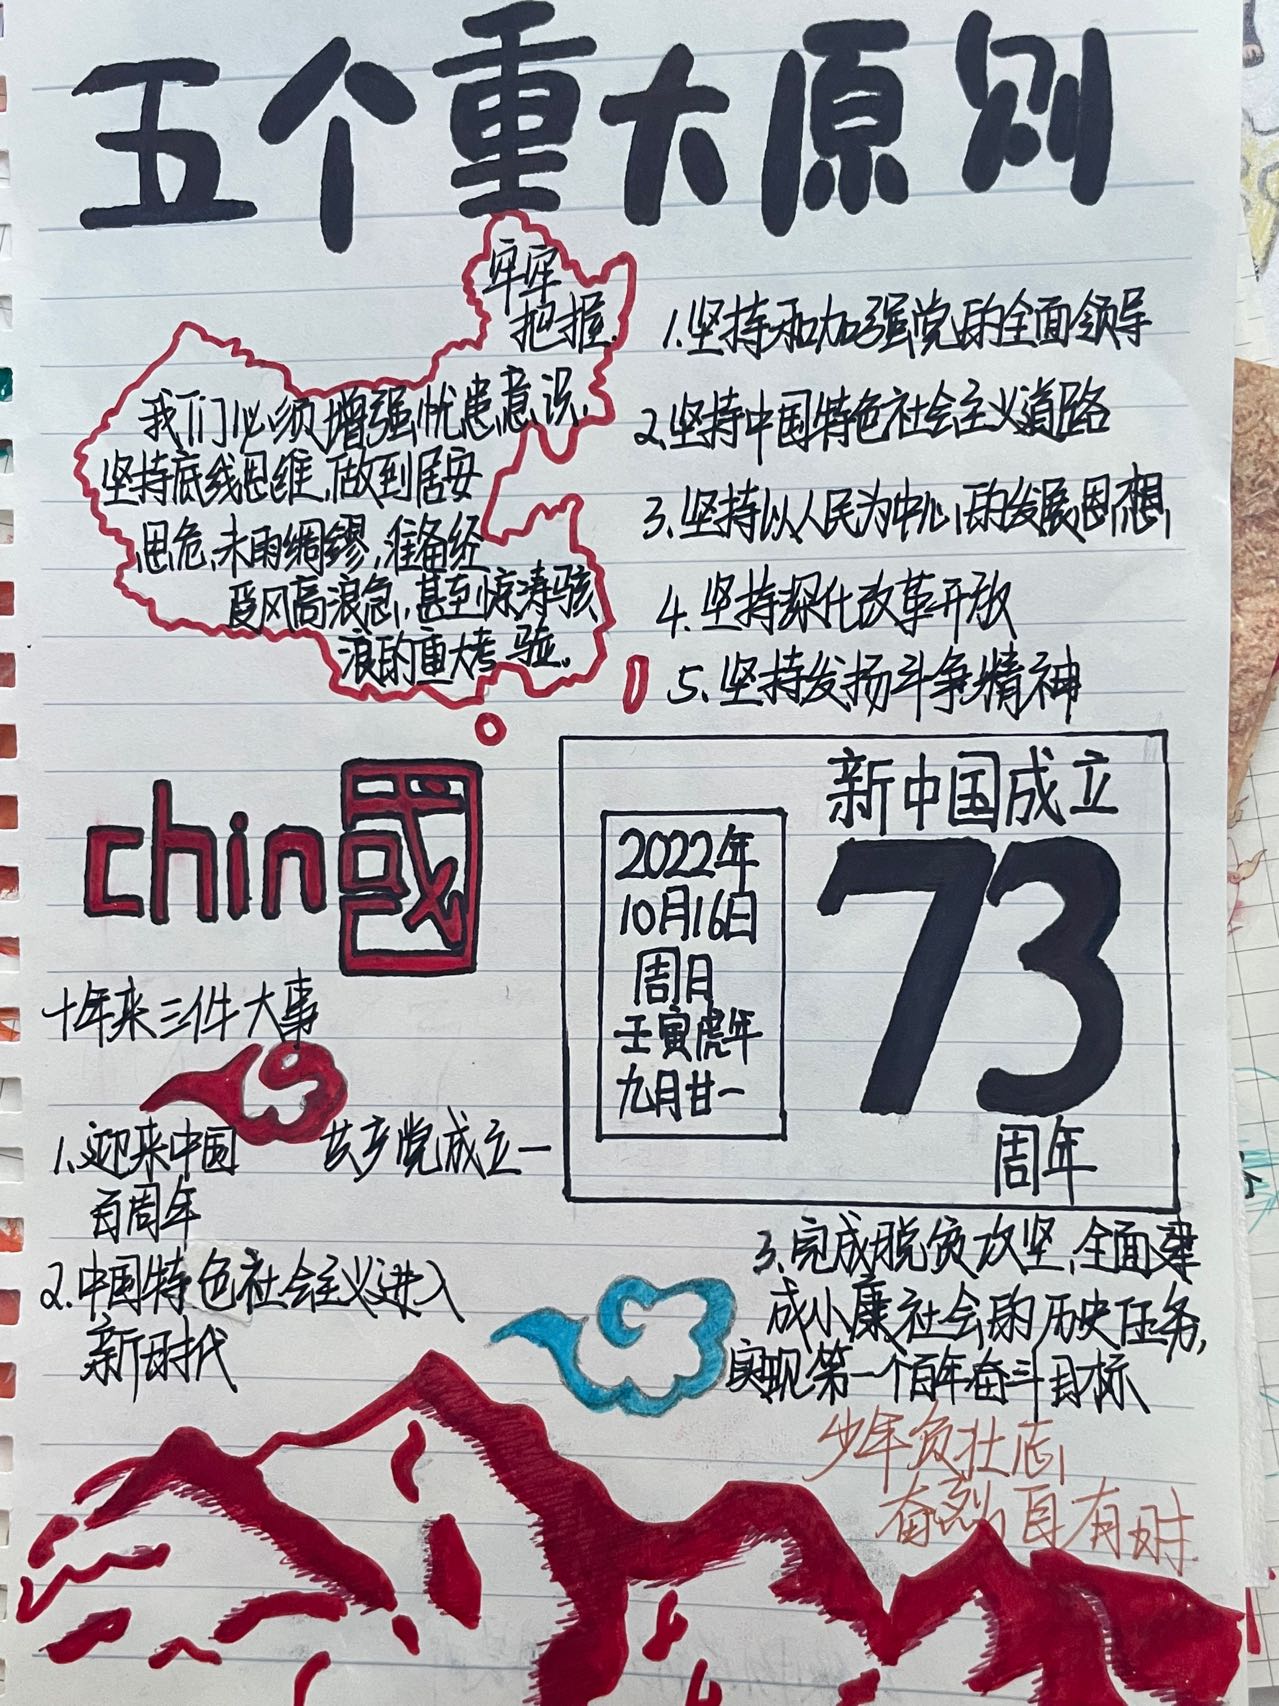 五个重大原则
牢牢
把握
我们必须增强忧患意识,
坚持底线思维,做到居安
思危,未雨绸缪,准备经
受风高浪急,甚至惊涛骇
浪的重大考验。
1.坚持和加强党的全面领导
2.坚持中国特色社会主义道路
3.坚持以人民为中心的发展思想
4.坚持深化改革开放
5.坚持发扬斗争精神
chin國
新中国成立
73
周年
2022年
10月16日
周日
壬寅虎年
九月廿一
十年来三件大事
1.迎来中国共产党成立一
百周年
2.中国特色社会主义进入
新时代
3.完成脱贫攻坚,全面建
成小康社会的历史任务,
实现第一个百年奋斗目标
少年负壮志
奋烈自有时